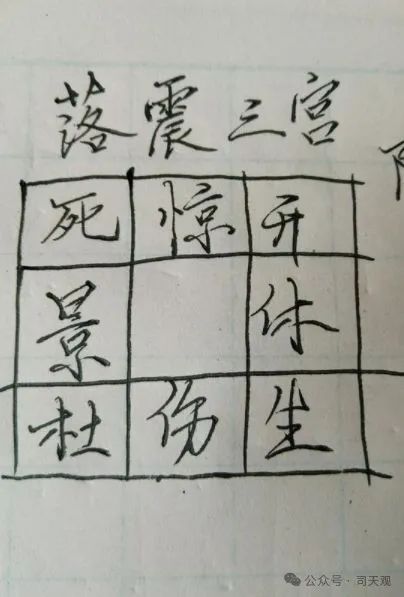 落震三宫
死 惊 开
景 休
杜 伤 生
公众号·司天观